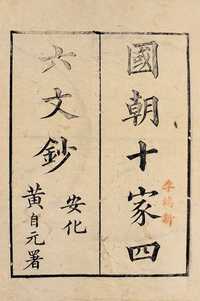 國朝十家四
六文鈔
安化
黃自元署